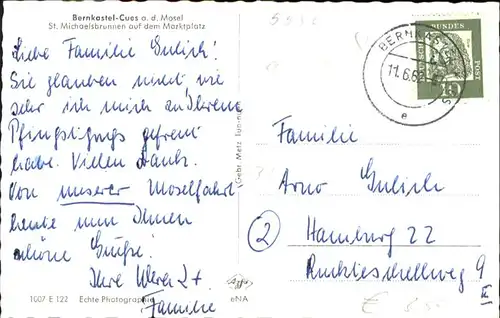 Bernkastel-Cues a. d. Mosel
St. Michaelsbrunnen auf dem Marktplatz
Liebe Familie Gulich!
Sie glauben nicht, wie
sehr ich mich an Ihrem
Pfingstgruß gefreut
habe. Vielen Dank.
Von unserer Moselfahrt
heute nun Ihnen
schöne Grüße!
Ihre
Familie
1007 E 122 Echte Photographie
Agfa
eNA
Gebr. Metz Tübingen
BERNKASTEL
11.6.6
e
DEUTSCHE BUNDESPOST
10
Familie
Arno Gulich
2 Hamburg 22
9